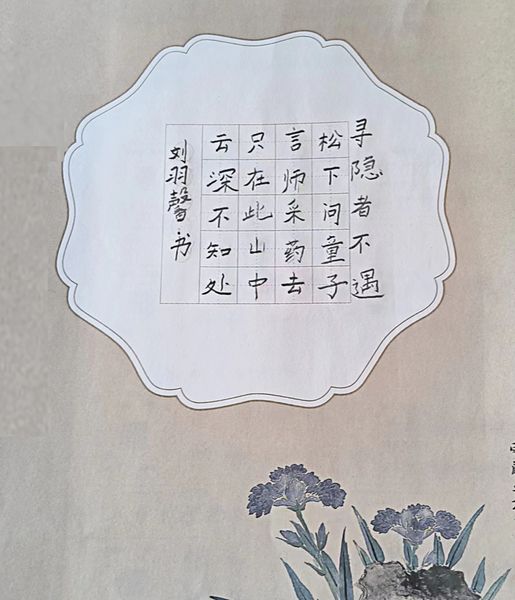 寻隐者不遇
松下问童子
言师采药去
只在此山中
云深不知处
刘羽馨书